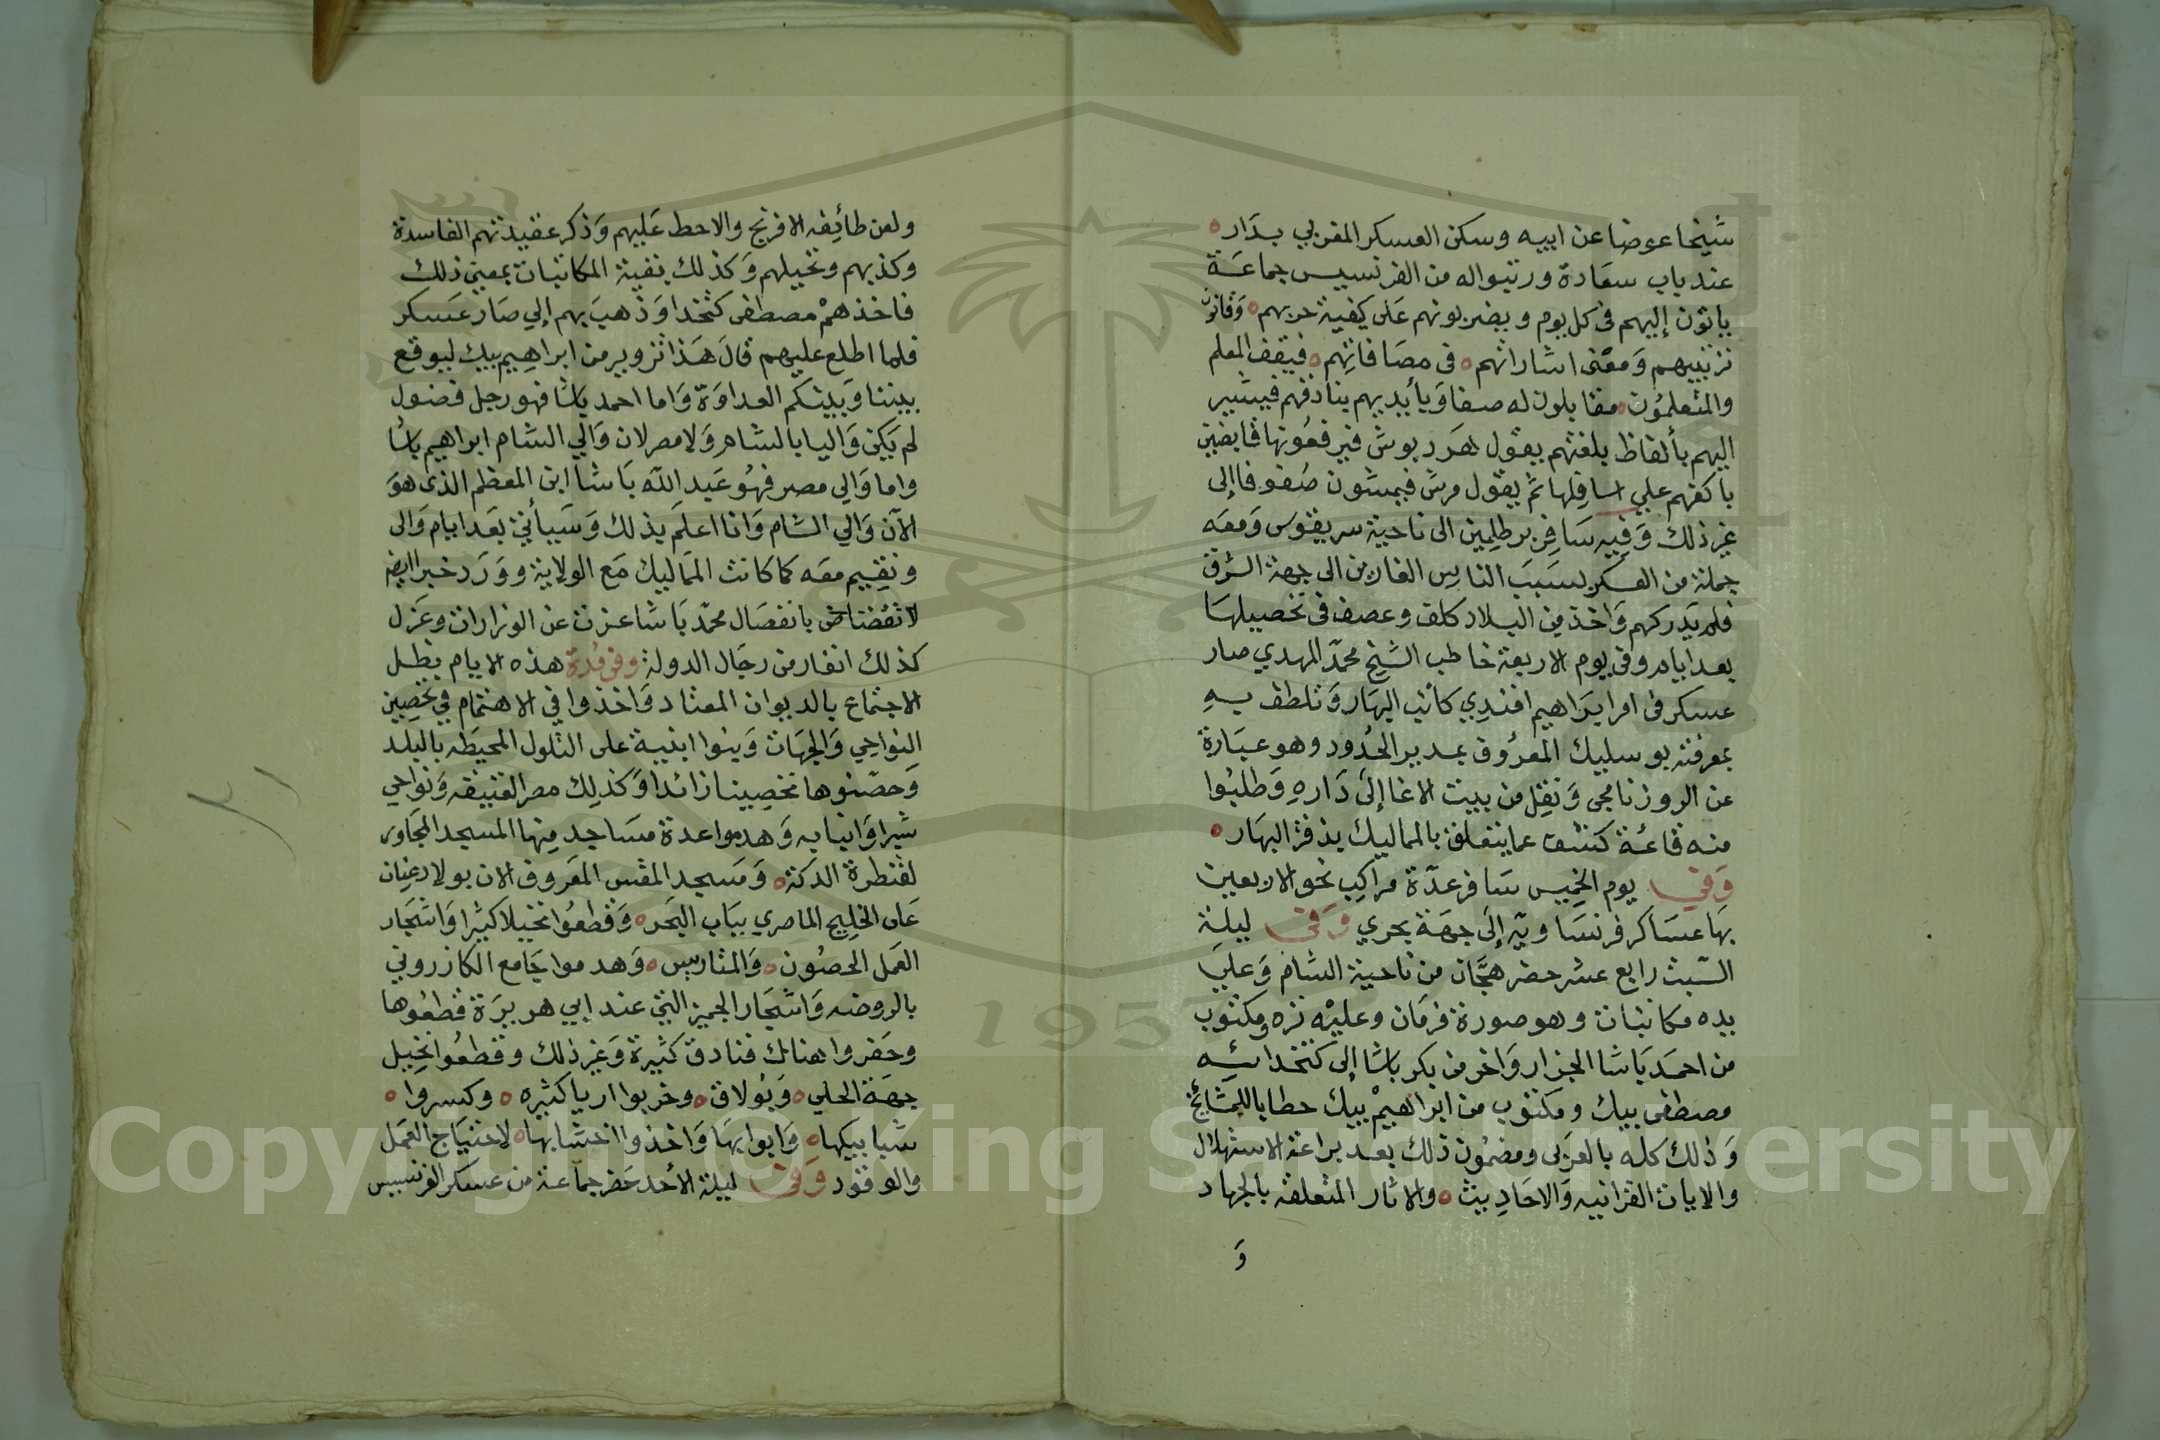 شيخا عوضا عن ابيه وسكن العسكر المغربي بدار
عند باب سعادة ورتبوا له من الفرنسيس جماعة
ياتون إليهم في كل يوم ويضربونهم على كيفية حربهم وقانون
ترتيبهم ومعنى اشاراتهم في مصافاتهم فيقف المعلم
والمتعلمون مقابلون له صفا وبأيديهم بنادقهم فيشير
اليهم بألفاظ بلغتهم يقول هردبوش فيرفعونها قابضين
باكفهم على اسافلها ثم يقول مرش فيمشون صفوفا إلى
غير ذلك وفيه سافر برطلمين الى ناحية سرياقوس ومعه
جملة من العسكر بسبب الناس الفارين الى جهة الشرق
فلم يدركهم واخذ من البلاد كلف وعصف في تحصيلها
بعد ايام وفي يوم الاربعة خاطب الشيخ محمد المهدي صار
عسكر في امر ابراهيم افندي كاتب البهار وتلطف به
بمعرفته بوسليك المعروف بمدير الحدود وهو عبارة
عن الروزنامجي ونقل من بيت الاغا إلى داره وطلبوا
منه قائمة كشف عما يتعلق بالمماليك بدفتر البهار
وفي يوم الخميس سافر عدة مراكب نحو الاربعين
بها عساكر فرنساويه إلى جهة بحري وفي ليلة
السبت رابع عشر حضر هجان من ناحية الشام وعلي
يده مكاتبات وهو صورة فرمان وعليه طره ومكتوب
من احمد باشا الجزار واخر من بكر باشا إلى كتخدائه
مصطفى بيك ومكتوب من ابراهيم بيك خطابا للمشائخ
وذلك كله بالعربى ومضمون ذلك بعد براعة الاستهلال
والايات القرانيه والاحاديث والاثار المتعلقة بالجهاد
و
ولعن طائفه الافرنج والاحط عليهم وذكر عقيدتهم الفاسدة
وكذبهم وتحيلهم وكذلك بقية المكاتبات بمعنى ذلك
فاخذهم مصطفى كتخدا وذهب بهم إلي صار عسكر
فلما اطلع عليهم قال هذا تزوير من ابراهيم بيك ليوقع
بيننا وبينكم العداوة واما احمد باشا فهو رجل فضول
لم يكن واليا بالشام ولا مصر لان والي الشام ابراهيم باشا
واما والي مصر فهو عبد الله باشا ابن العظم الذى هو
الآن والي الشام وانا اعلم بذلك وسيأتي بعد ايام والى
ونقيم معه كما كانت المماليك مع الولاية وورد خبر ايضا
بانفصال محمد باشا عزت عن الوزارات وعزل
كذلك انفار من رجال الدولة وفى مدة هذه الايام بطل
الاجتماع بالديوان المعتاد واخذوا في الاهتمام في تحصين
النواحي والجهات وبنوا ابنية على التلول المحيطه بالبلد
وحصنوها تحصينا زائدا وكذلك مصر العتيقه ونواحي
شبرا وانبابه وهدموا عدة مساجد منها المسجد المجاور
لقنطرة الدكة ومسجد المقس المعروف الان بولاد عنان
على الخليج الناصري بباب البحر وقطعوا نخيلا كثيرا واشجار
العمل الحصون والمتاريس وهدموا جامع الكازروني
بالروضه واشجار الجميز التي عند إبي هريرة قطعوها
وحفروا هنالك خنادق كثيرة وغير ذلك وقطعوا نخيل
جهة الحلي وبولاق وخربوا كثيره وكسروا
شبابيكها وابوابها واخذوا اخشابها لاحتياج العمل
والوقود وفى ليلة الأحد حضر جماعة من عسكر الفرنسيس
Copyright © King Saud University
1957